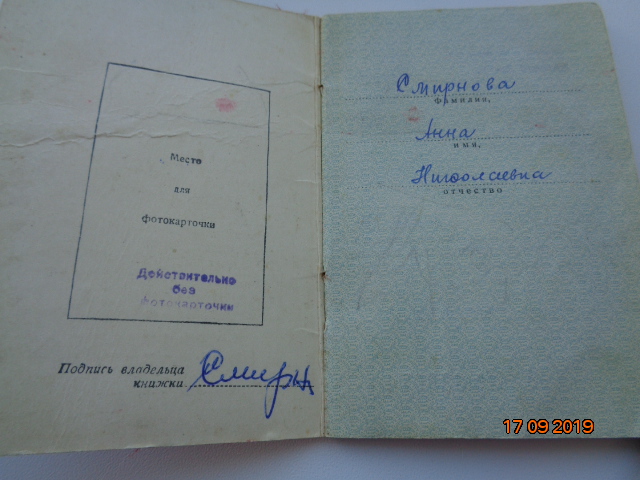 Место
для
фотокарточки
Действительно
без
фотокарточки
Подпись владельца
книжки Смирн
Смирнова
фамилия,
Анна
имя,
Николаевна
отчество
17 09 2019